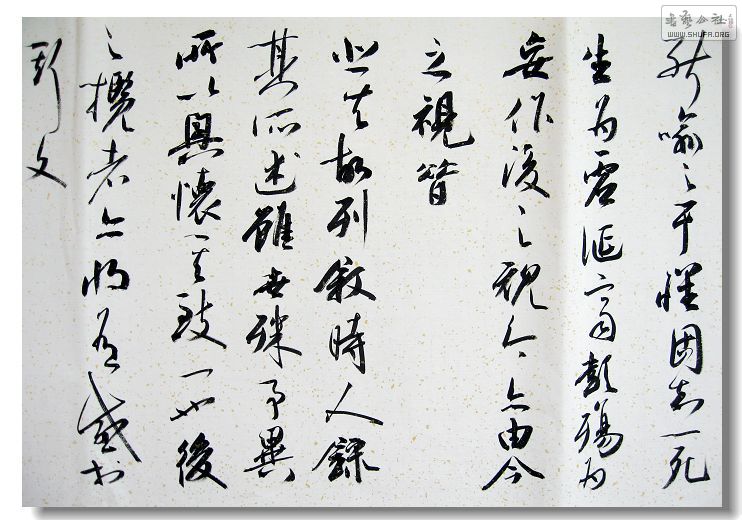 能喻之于懷固知一死
生为虚誕齊彭殤为
妄作後之視今亦由今
之視昔
悲夫故列叙時人錄
其所述雖世殊事異
所以興懷其致一也後
之攬者亦將有感於
斯文
书艺公社
WWW.SHUFA.ORG